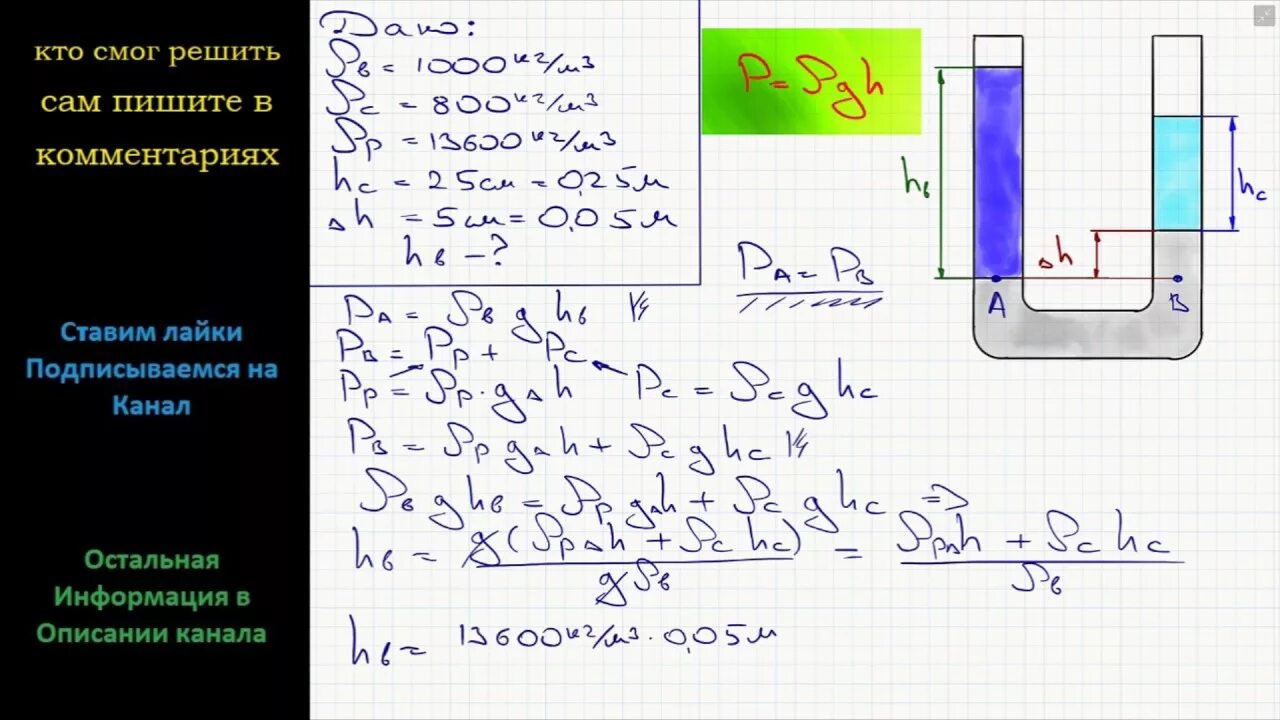 кто смог решить
сам пишите в
комментариях
Ставим лайки
Подписываемся на
Канал
Остальная
Информация в
Описании канала
Дано:
ρв = 1000 кг/м³
ρс = 800 кг/м³
ρр = 13600 кг/м³
hс = 25 см = 0,25 м
Δh = 5 см = 0,05 м
hв – ?
P = ρgh
PA = PB
hв
Δh
hс
A
B
PA = ρв g hв
PB = Pр + Pс
Pр = ρр · g Δh Pс = ρс g hс
PB = ρр g Δh + ρс g hс
ρв g hв = ρр g Δh + ρс g hс =>
hв = g(ρр Δh + ρс hс) / gρв = ρр Δh + ρс hс / ρв
hв = 13600 кг/м³ · 0,05 м